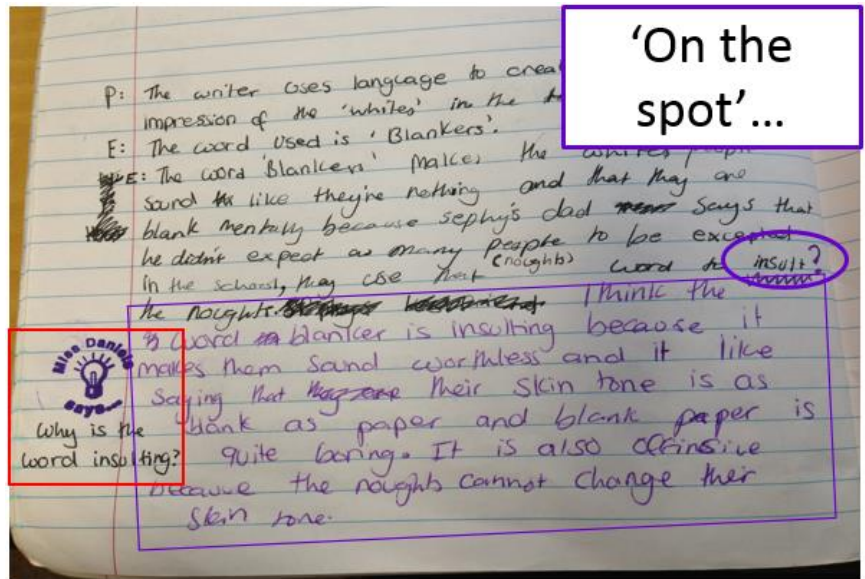 'On the
spot'...
P: The writer uses language to crea
impression of the 'whites' in the
E: The word used is 'Blankers'.
E: The word 'Blankers' makes the whites people
sound like they're nothing and that they are
blank mentally because sephy's dad says that
he didn't expect as many people to be excepted
in the school, they use that (noughts) word to insult?
the noughts. I think the
word blanker is insulting because it
makes them sound worthless and it like
saying that their skin tone is as
blank as paper and blank paper is
quite boring. It is also offinsive
because the noughts cannot change their
skin tone.
Miss Daniels
says...
Why is the
word insulting?